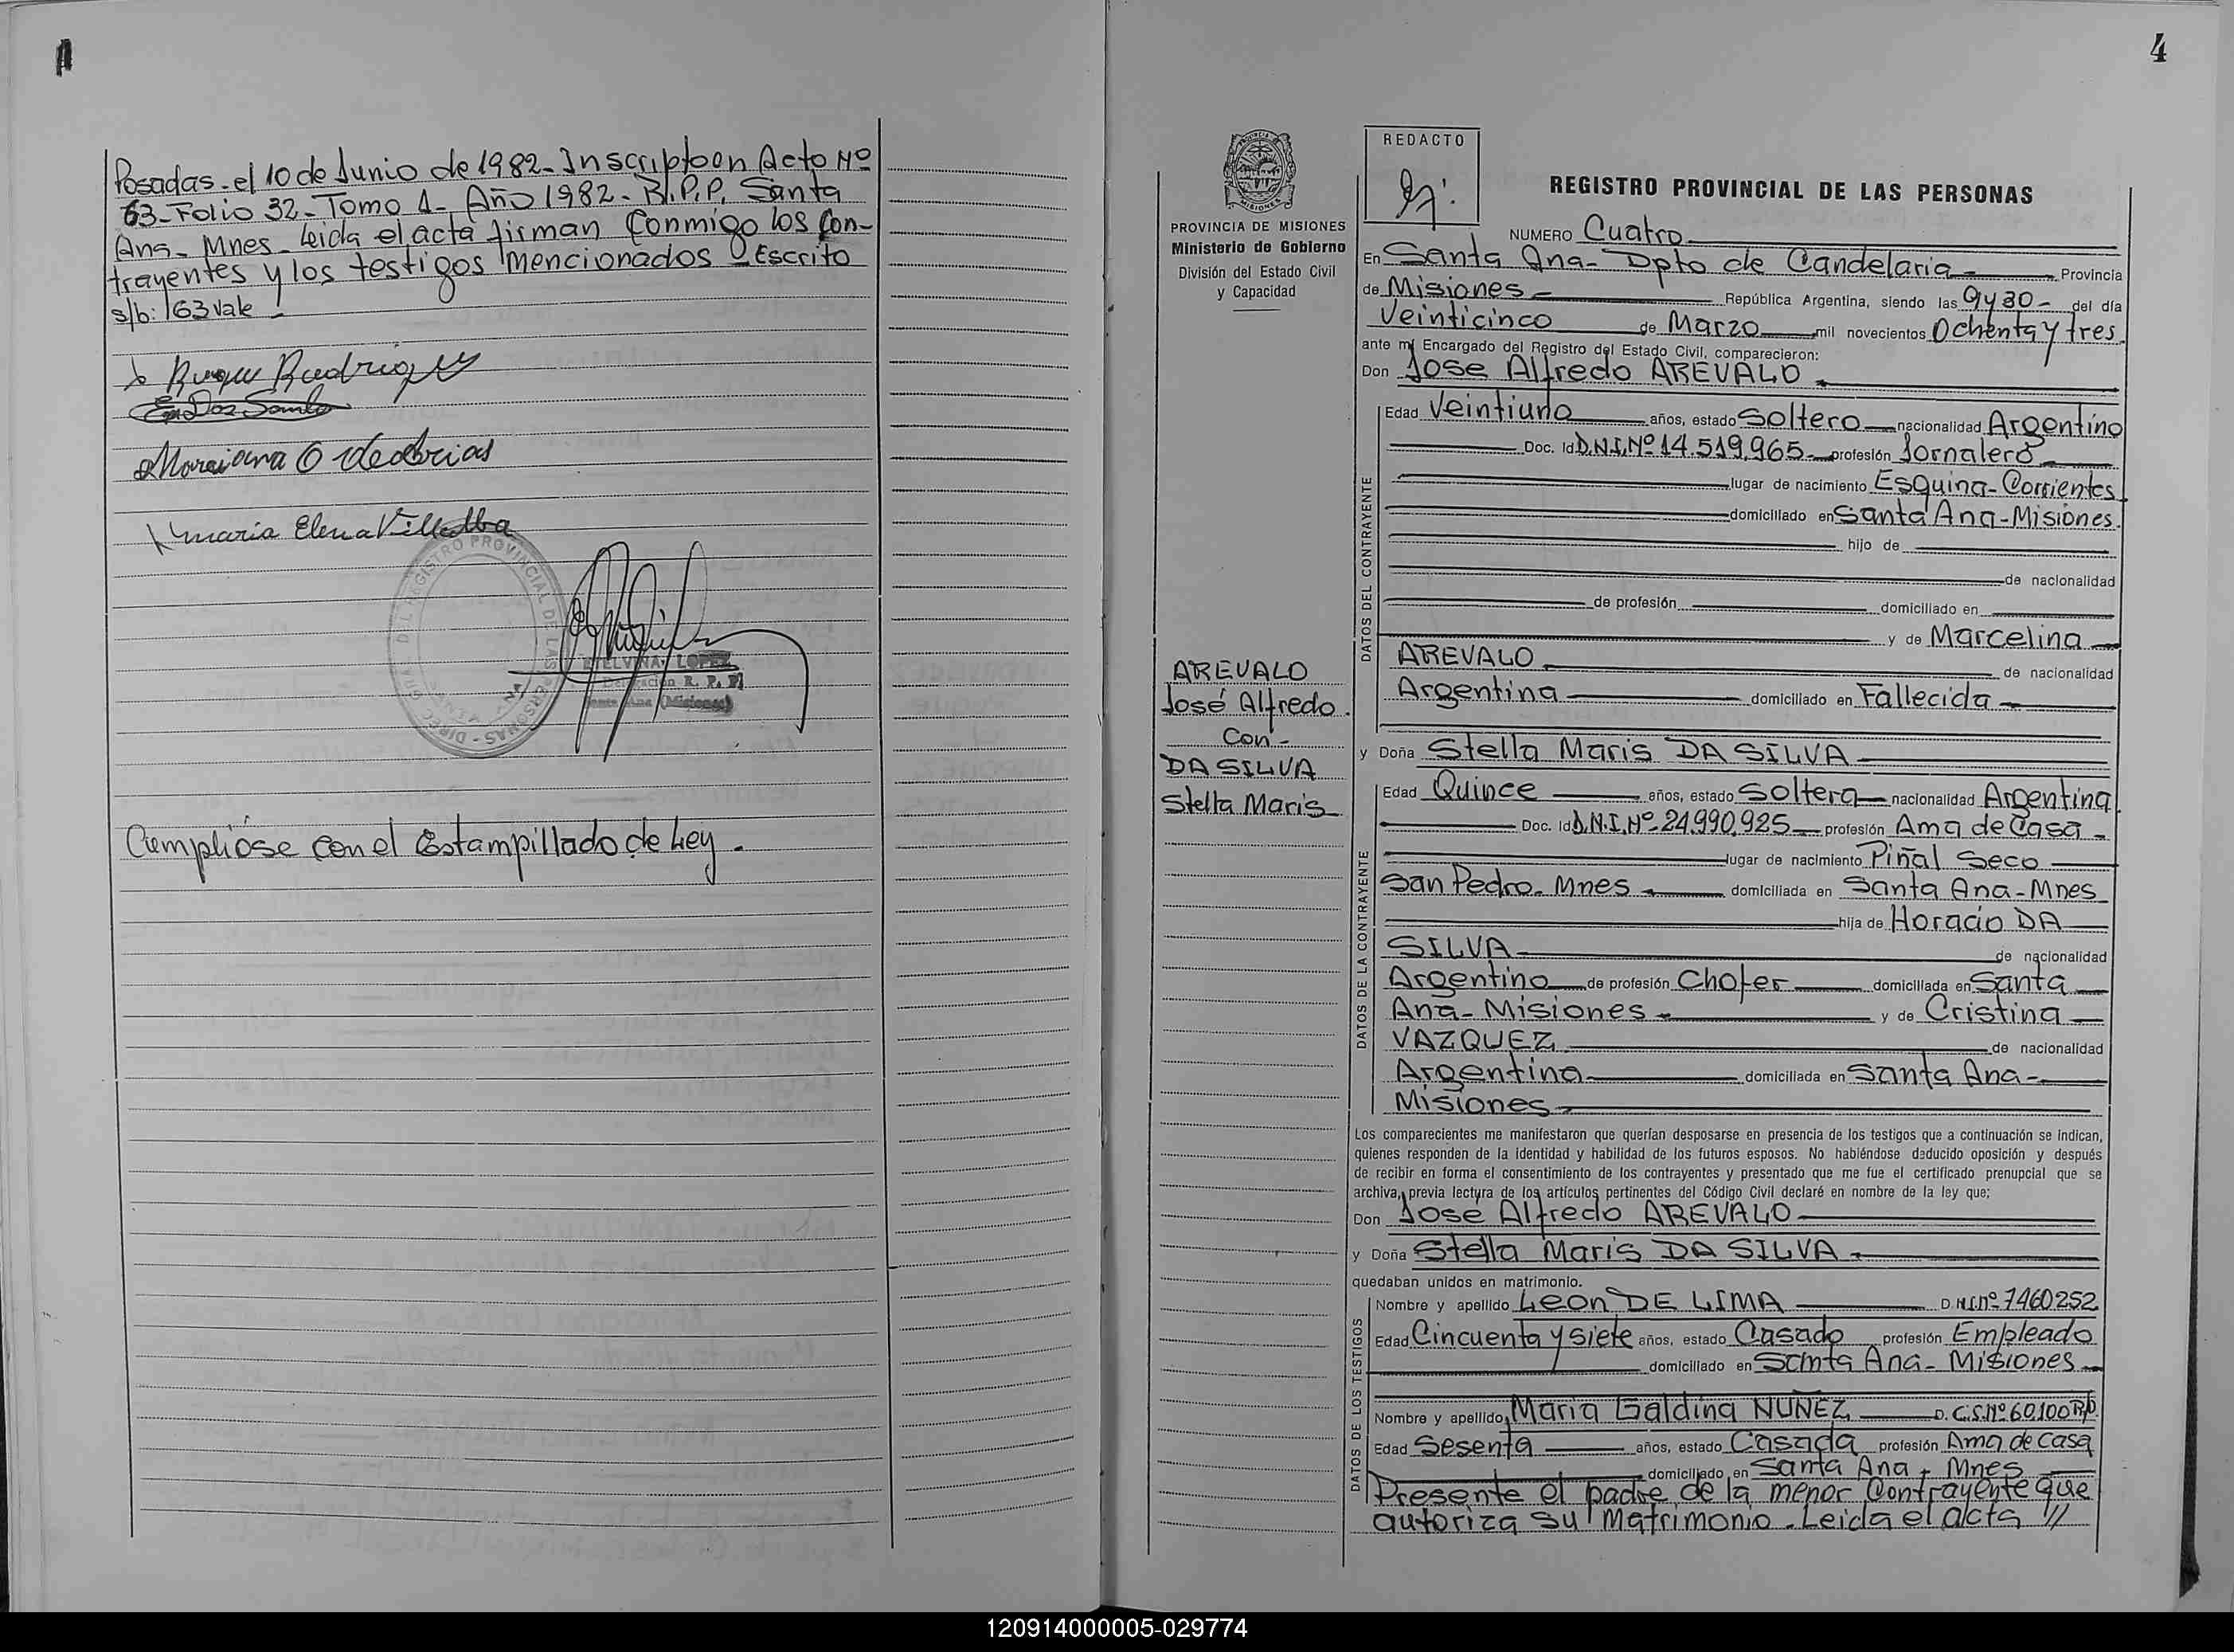 Posadas. el 10 de Junio de 1982 - Inscripto en Acto Nº
63 - Folio 32 - Tomo 1 - Año 1982 - R.P.P. Santa
Ana - Mnes - Leida el acta firman Conmigo los Con-
trayentes y los testigos mencionados - Escrito
s/b: 63 Vale -
Maria Elena Villalba
REGISTRO PROVINCIAL DE LAS PERSONAS
ETELVINA LOPEZ
R. P. P.
Santa Ana (Misiones)
Cumplióse con el Estampillado de Ley.
4
PROVINCIA DE MISIONES
Ministerio de Gobierno
División del Estado Civil
y Capacidad
AREVALO
José Alfredo
Con -
DA SILVA
Stella Maris
REDACTO
REGISTRO PROVINCIAL DE LAS PERSONAS
NUMERO Cuatro
En Santa Ana - Dpto de Candelaria - Provincia
de Misiones - República Argentina, siendo las 9 y 30 - del día
Veinticinco de Marzo mil novecientos Ochenta y tres
ante mí Encargado del Registro del Estado Civil, comparecieron:
Don Jose Alfredo AREVALO
DATOS DEL CONTRAYENTE
Edad Veintiuno años, estado Soltero nacionalidad Argentino
Doc. Id D.N.I. Nº 14.519.965 - profesión Jornalero
lugar de nacimiento Esquina - Corrientes
domiciliado en Santa Ana - Misiones.
hijo de
de nacionalidad
de profesión domiciliado en
y de Marcelina
AREVALO de nacionalidad
Argentina domiciliado en Fallecida
y Doña Stella Maris DA SILVA
DATOS DE LA CONTRAYENTE
Edad Quince años, estado Soltera nacionalidad Argentina
Doc. Id D.N.I. Nº 24.990.925 profesión Ama de Casa -
lugar de nacimiento Piñal Seco
San Pedro - Mnes domiciliada en Santa Ana - Mnes
hija de Horacio DA
SILVA de nacionalidad
Argentino de profesión Chofer domiciliada en Santa
Ana - Misiones y de Cristina
VAZQUEZ de nacionalidad
Argentina domiciliada en Santa Ana -
Misiones
Los comparecientes me manifestaron que querían desposarse en presencia de los testigos que a continuación se indican,
quienes responden de la identidad y habilidad de los futuros esposos. No habiéndose deducido oposición y después
de recibir en forma el consentimiento de los contrayentes y presentado que me fue el certificado prenupcial que se
archiva, previa lectura de los artículos pertinentes del Código Civil declaré en nombre de la ley que;
Don Jose Alfredo AREVALO
y Doña Stella Maris DA SILVA
quedaban unidos en matrimonio.
DATOS DE LOS TESTIGOS
Nombre y apellido Leon DE LIMA D.N.I. nº 7460252
Edad Cincuenta y siete años, estado Casado profesión Empleado
domiciliado en Santa Ana - Misiones
Nombre y apellido Maria Galdina NUÑEZ D. C.S. Nº 60.100
Edad Sesenta años, estado Casada profesión Ama de casa
domiciliado en Santa Ana - Mnes
Presente el padre de la menor Contrayente que
autoriza su matrimonio - Leida el acta //
120914000005-029774